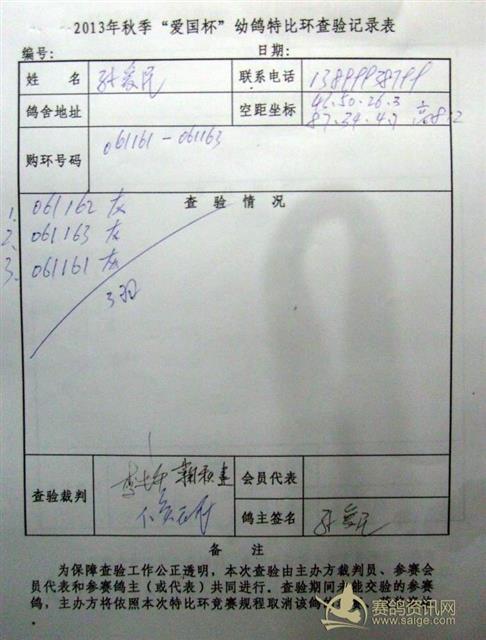 2013年秋季“爱国杯”幼鸽特比环查验记录表
编号: 日期:
姓 名 张爱民 联系电话
鸽舍地址 空距坐标 46.50.26.3
87.34.4.7 高812
购环号码 061161-061163
查 验 情 况
1. 061162 灰
2. 061163 灰
3. 061161 灰
3羽
查验裁判 会员代表
鸽主签名 张爱民
备 注
为保障查验工作公正透明,本次查验由主办方裁判员、参赛会
员代表和参赛鸽主(或代表)共同进行。查验期间未能交验的参赛
鸽,主办方将依照本次特比环竞赛规程取消该鸽
赛鸽资讯网
www.saige.com